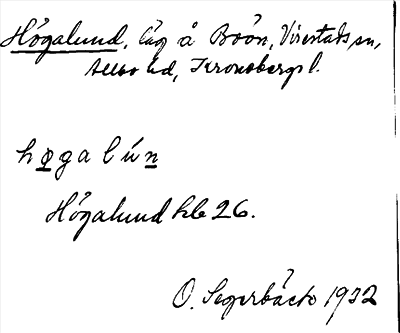 Högalund, läg å Böön, Virestads sn,
Allbo hd, Kronobergs l.
høgalún
Högalund hb 26.
O. Segerbäck 1932